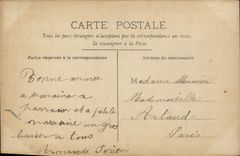 CARTE POSTALE
Tous les pays étrangers n'acceptent pas la correspondance au verso.
Se renseigner à la Poste
Partie réservée à la correspondance
Adresse du destinataire
Bonne année
a marraine a
parrain et a petite
marraine un gros
baiser a tous
Madame
Mademoiselle
Arlaud
Paris